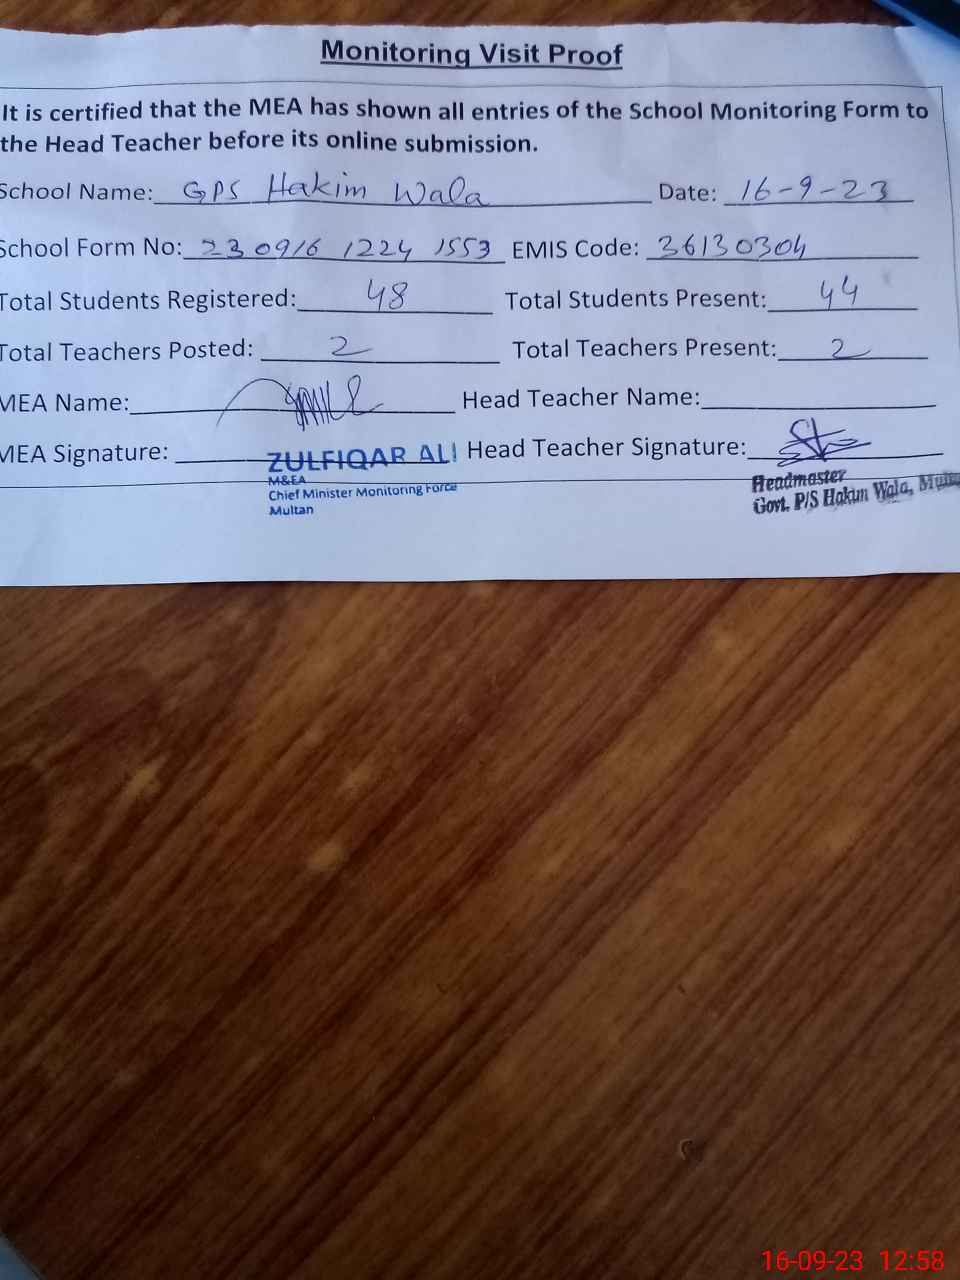 Monitoring Visit Proof
It is certified that the MEA has shown all entries of the School Monitoring Form to
the Head Teacher before its online submission.
School Name: GPS Hakim Wala Date: 16-9-23
School Form No: 230916 1224 1553 EMIS Code: 36130304
Total Students Registered: 48 Total Students Present: 44
Total Teachers Posted: 2 Total Teachers Present: 2
MEA Name: Head Teacher Name:
MEA Signature: Head Teacher Signature:
ZULFIQAR ALI
M&EA
Chief Minister Monitoring Force
Multan
Headmaster
Govt. P/S Hakim Wala,
16-09-23 12:58